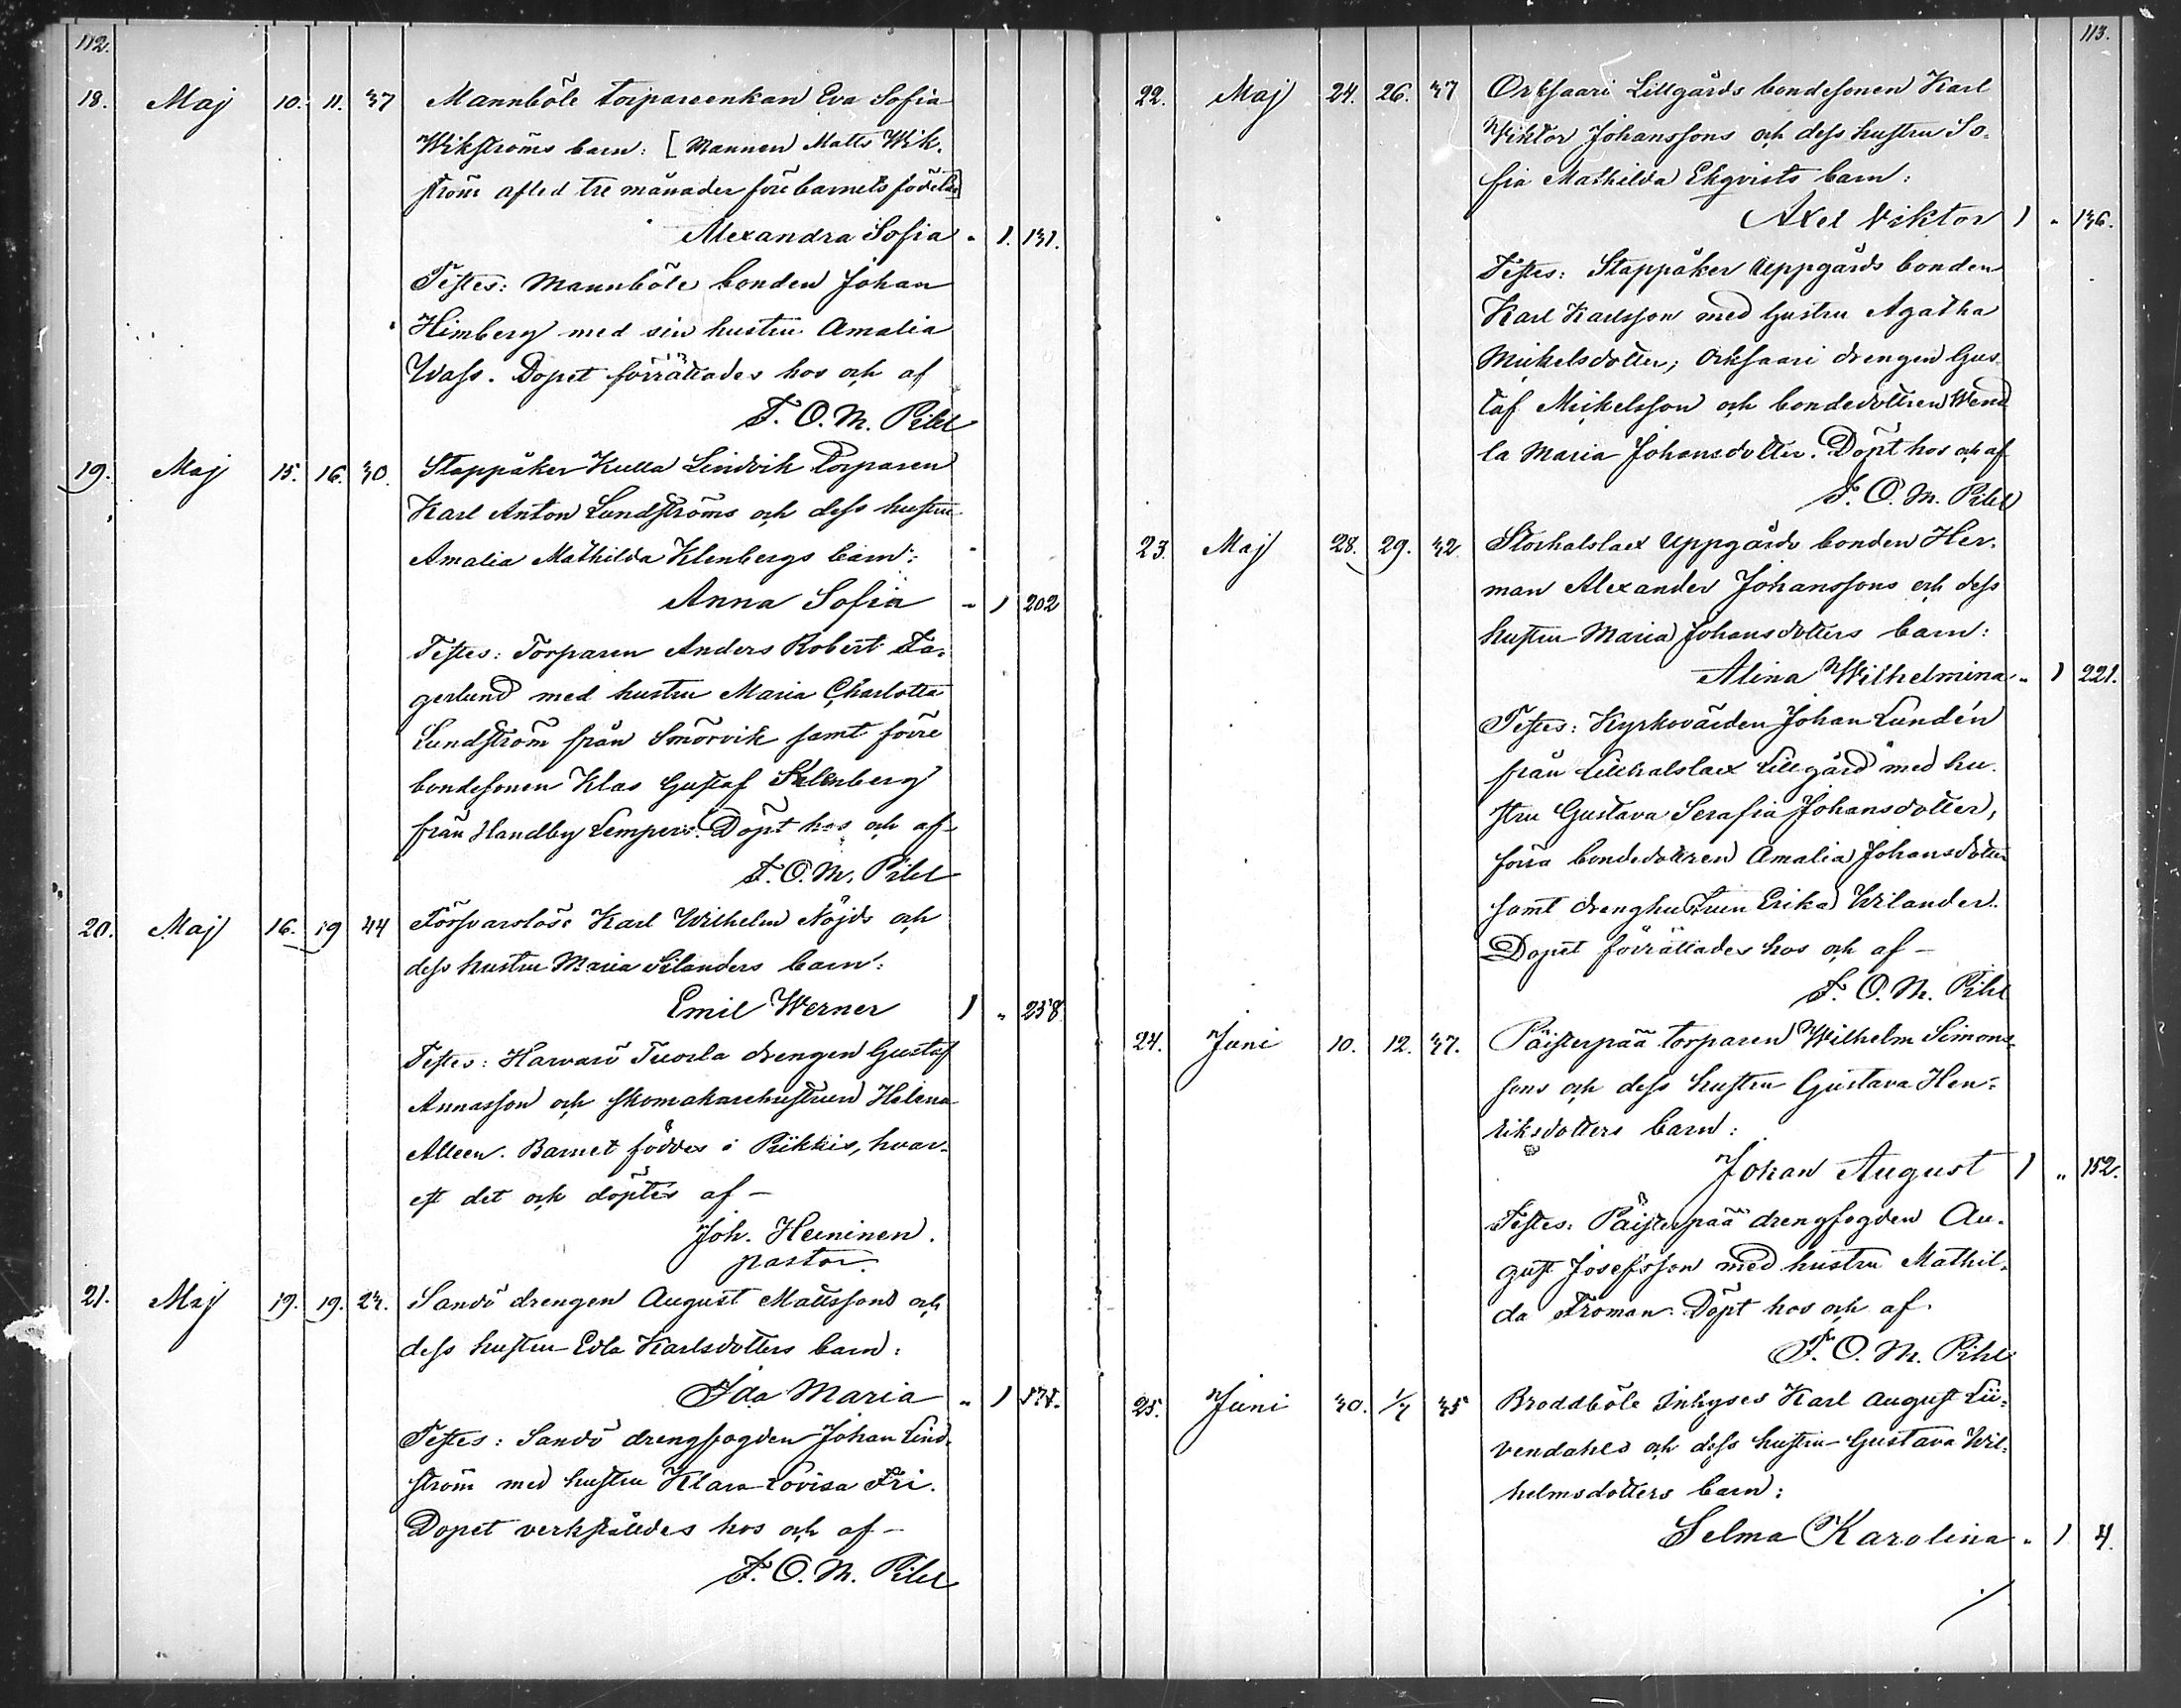 112.
18. Maj 10. 11. 37 Mannböle torpareenkan Eva Sofia
Wikströms barn: [Mannen Matts Wik-
ström afled tre månader före barnets födelse]
Alexandra Sofia " 1. 131.
Testes: Mannböle bonden Johan
Himberg med sin hustru Amalia
Wass. Dopet förrättades hos och af
F. O. M. Pihl
19. Maj 15. 16. 30. Stappåker Kulla Lindvik torparen
Karl Anton Lundströms och dess hustru
Amalia Mathilda Klenbergs barn:
Anna Sofia " 1 202
Testes: Torparen Anders Robert Fa-
gerlund med hustru Maria Charlotta
Lundström från Smörvik samt förre
bondesonen Klas Gustaf Klenberg
från Handby Lempers. Döpt hos och af
F. O. M. Pihl
20. Maj 16. 19 44 Försvarslöse Karl Wilhelm Nöjds och
dess hustru Maria Silanders barn:
Emil Werner 1 " 238
Testes: Harvarö Tuorla drengen Gustaf
Annasson och skomakarehustrun Helena
Alleen. Barnet föddes i Pikkis, hvar-
est det och döptes af –
Joh. Heininen.
pastor.
21. Maj 19. 19. 24. Sandö drengen August Mattssons och
dess hustru Edla Karlsdotters barn:
Ida Maria " 1 171.
Testes: Sandö drengfogden Johan Lind-
ström med hustru Klara Lovisa Fri.
Dopet verkställdes hos och af –
F. O. M. Pihl
113.
22. Maj 24. 26. 37 Orksaari Lillgårds bondesonen Karl
Wiktor Johanssons och dess hustru So-
fia Mathilda Ekqvists barn:
Axel Viktor 1 " 136.
Testes: Stappåker Uppgårds bonden
Karl Karlsson med hustru Agatha
Mickelsdotter; Orksaari drengen Gus-
taf Mickelsson och bondedottren Wend
la Maria Johansdotter. Döpt hos och af
F. O. M. Pihl
23. Maj 28. 29. 32. Storhalslax Uppgårds bonden Her-
man Alexander Johanssons och dess
hustru Maria Johansdotters barn:
Alina Wilhelmina " 1 221.
Testes: Kyrkovärden Johan Lundén
från Lillhalslax Lillgård med hu-
stru Gustava Serafia Johansdotter,
förra bondedottren Amalia Johansdotter
samt dränghustrun Erika Wilander.
Dopet förrättades hos och af –
F. O. M. Pihl
24. Juni 10. 12. 37. Päisterpää torparen Wilhelm Simons-
sons och dess hustru Gustava Hen-
riksdotters barn:
Johan August 1 " 152.
Testes: Päisterpää drengfogden Au-
gust Josefsson med hustru Mathil-
da Froman. Döpt hos och af
F. O. M. Pihl
25. Juni 30. 1/7 35 Broddböle Inhyses Karl August Lü-
vendahls och dess hustru Gustava Wil-
helmsdotters barn:
Selma Karolina " 1 4.